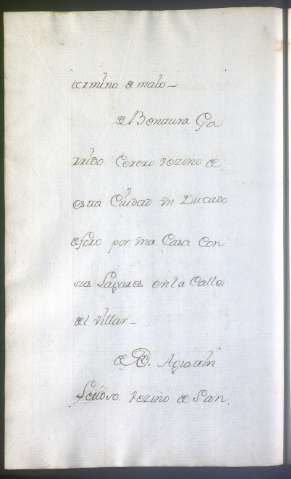 termino de malo
de Bentura Ga
rrido Cerero vezino de
esta Ciudad Un Ducado
de foro por una Casa Con
sus Lagares en la Calle
del Villar
de D. Agustin
vezino de San